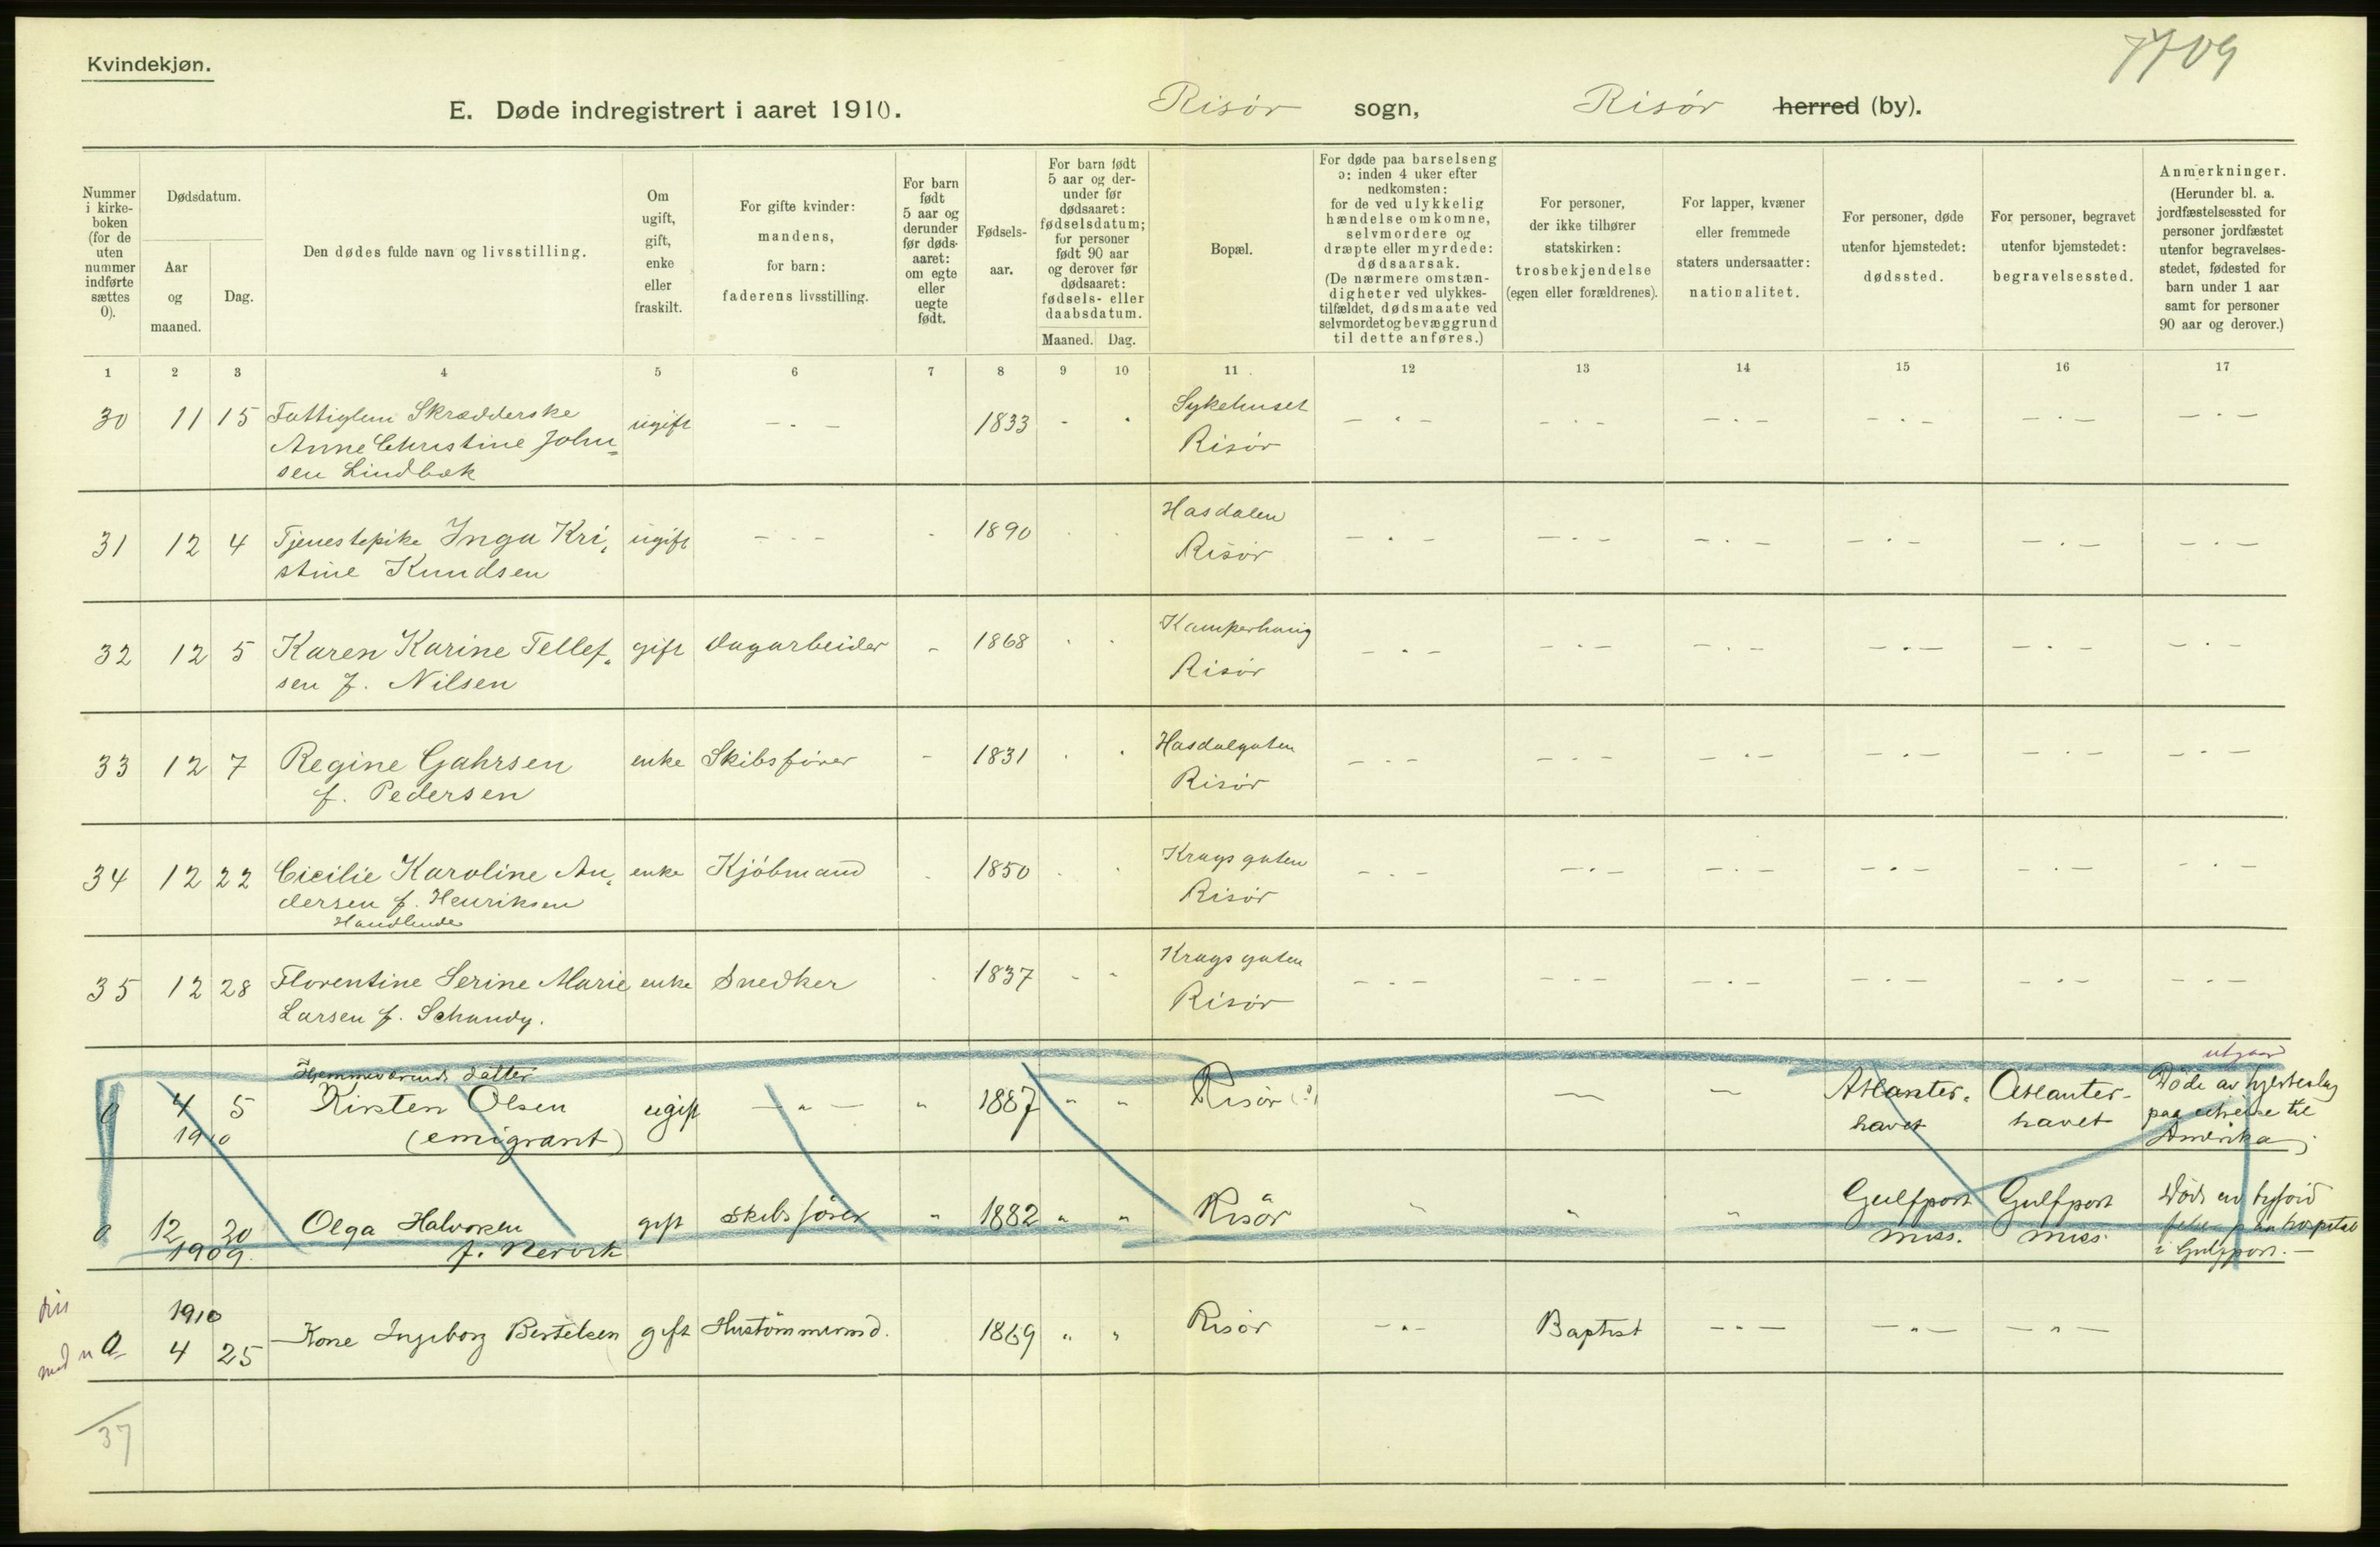 Kvindekjøn.
7709
E. Døde indregistrert i aaret 1910. Risør sogn, Risør herred (by).
Nummer i kirkeboken (for de uten nummer indførte sættes 0).
Dødsdatum.
Aar og maaned.
Dag.
Den dødes fulde navn og livsstilling.
Om ugift, gift, enke eller fraskilt.
For gifte kvinder: mandens, for barn: faderens livsstilling.
For barn født 5 aar og derunder før dødsaaret: om egte eller uegte født.
Fødselsaar.
For barn født 5 aar og derunder før dødsaaret: fødselsdatum; for personer født 90 aar og derover før dødsaaret: fødsels- eller daabsdatum.
Maaned. Dag.
Bopæl.
For døde paa barselseng ɔ: inden 4 uker efter nedkomsten: for de ved ulykkelig hændelse omkomne, selvmordere og dræpte eller myrdede: dødsaarsak. (De nærmere omstændigheter ved ulykkestilfældet, dødsmaate ved selvmordet og bevæggrund til dette anføres.)
For personer, der ikke tilhører statskirken: trosbekjendelse (egen eller forældrenes).
For lapper, kvæner eller fremmede staters undersaatter: nationalitet.
For personer, døde utenfor hjemstedet: dødssted.
For personer, begravet utenfor hjemstedet: begravelsessted.
Anmerkninger. (Herunder bl. a. jordfæstelsessted for personer jordfæstet utenfor begravelsesstedet, fødested for barn under 1 aar samt for personer 90 aar og derover.)
1 2 3 4 5 6 7 8 9 10 11 12 13 14 15 16 17
30 11 15 Fattiglem Skrædderske ugift - . - 1833 - . Sykehuset
Anne Christine John= Risør
sen Lindbæk
31 12 4 Tjenestepike Inga Kri, ugift - . - 1890 Hasdalen
stine Knudsen Risør
32 12 5 Karen Karine Tellef, gift dagarbeider - 1868 Kamperhaug
sen f. Nilsen Risør
33 12 7 Regine Gahrsen enke Skibsfører - 1831 Hasdalgaten
f. Pedersen Risør
34 12 22 Cicilie Karoline An, enke Kjøbmand 1850 Kragsgaten
dersen f. Henriksen Risør
Handlende
35 12 28 Florentine Serine Marie enke Snedker 1837 Kragsgaten
Larsen f. Schandy. Risør
utgaar
Hjemmeværende datter
0 4 5 Kirsten Olsen ugift - " - " 1887 " " Risør (?) Atlanter- Atlanter- Døde av hjerteslag
1910 (emigrant) havet havet paa utreise til
Amerika
0 12 20 Olga Halvorsen gift Skibsfører " 1882 " " Risør " " " Gulfport Gulfport Døde av tyfoid
1909. f. Nervik Miss. Miss. feber paa hospital
i Gulfport. -
1910
0 4 25 Kone Ingeborg Bertelsen gift Hustømmermd. 1869 " " Risør - " - Baptist - " - - " - - " -
37